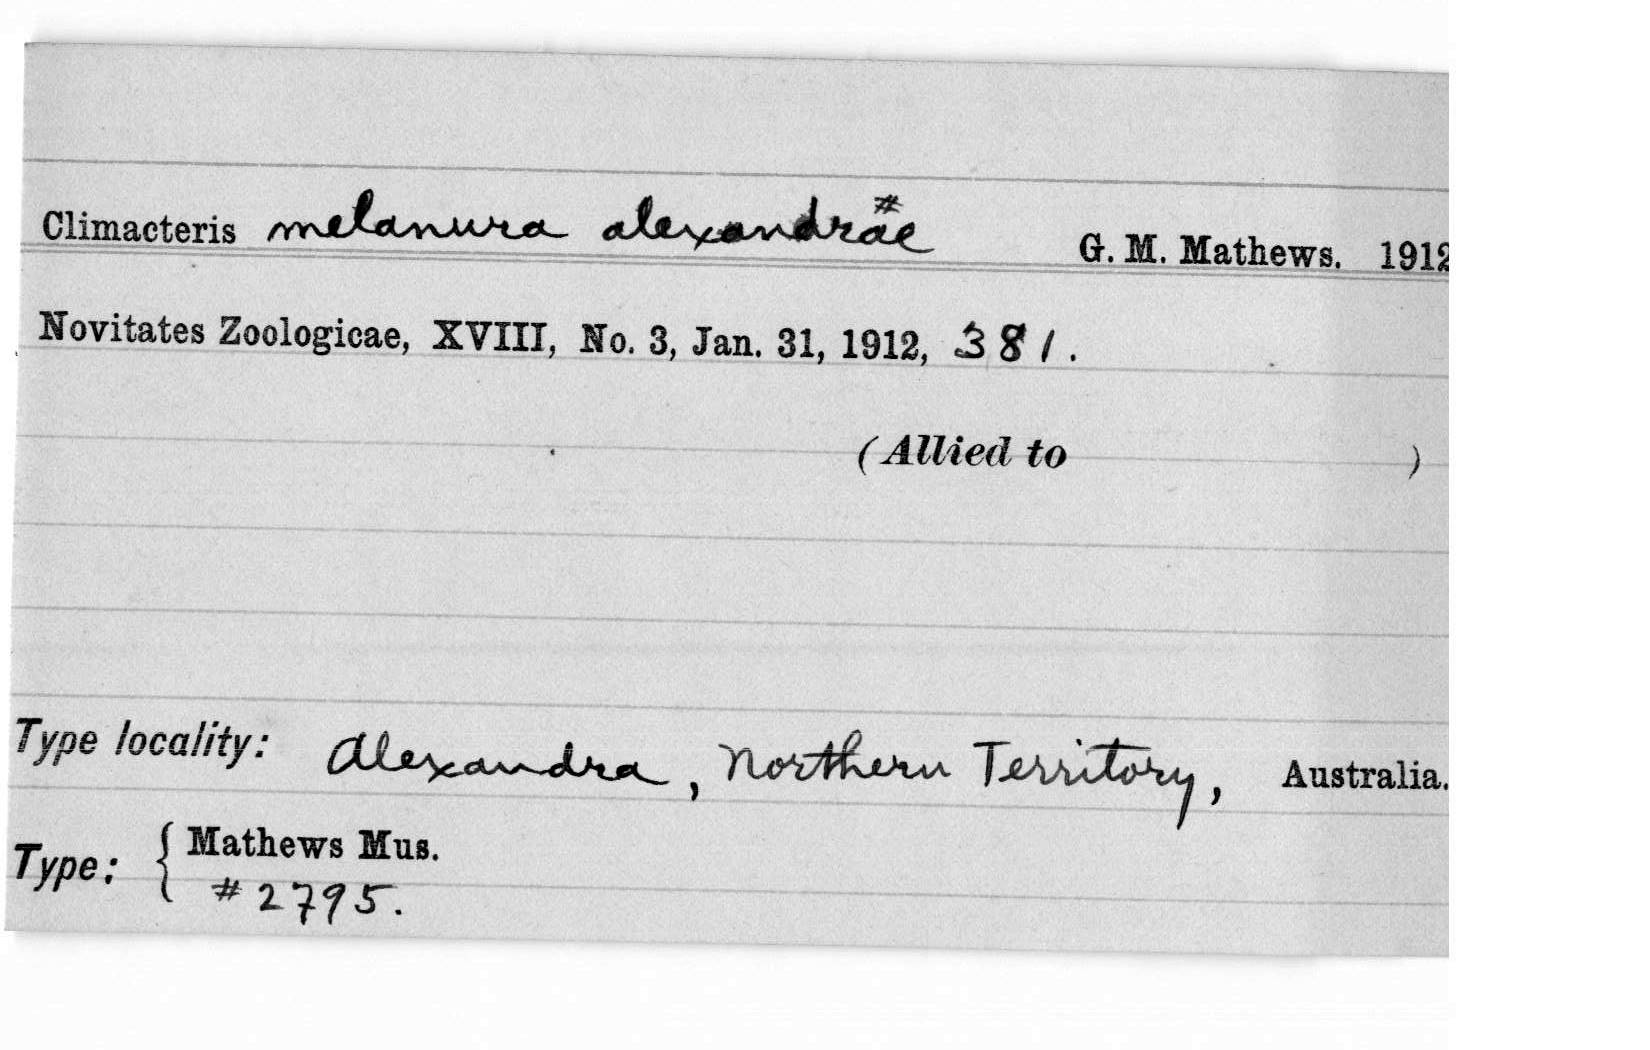 #
Climacteris melanura alexandrae G. M. Mathews. 1912
Novitates Zoologicae, XVIII, No. 3, Jan. 31, 1912, 381.
(Allied to )
Type locality: Alexandra, Northern Territory, Australia.
Type: { Mathews Mus.
#2795.